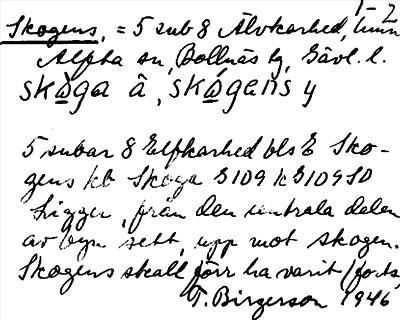 1-2
Skogens, = 5 sub 8 Älvkarhed, Simn
Alfta sn, Bollnäs tg, Gävl. l.
skòga â, skógens y
5 subar 8 Elfkarhed bls E Sko-
gens kb Skoga 3109 k 3109 SO
Ligger, från den centrala delen
av byn sett, upp mot skogen.
Skogens skall förr ha varit (forts,
T. Birgerson 1946